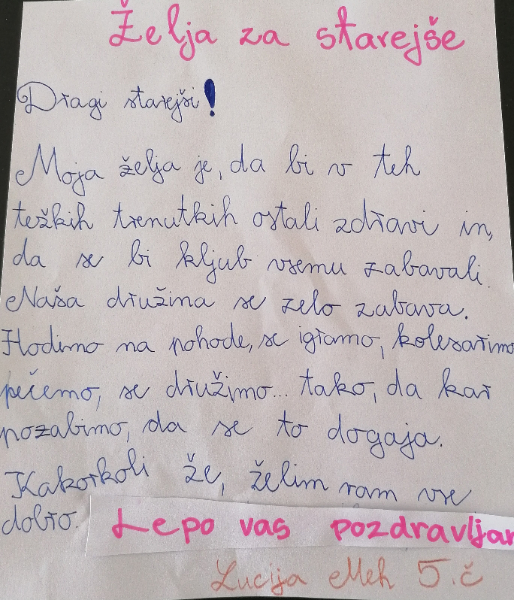 Želja za starejše
Dragi starejši!
Moja želja je, da bi v teh
težkih trenutkih ostali zdravi in,
da se bi kljub vsemu zabavali.
Naša družina se zelo zabava.
Hodimo na pohode, se igramo, kolesarimo
pečemo, se družimo... tako, da kar
pozabimo, da se to dogaja.
Kakorkoli že, želim vam vse
dobro. Lepo vas pozdravljam
Lucija Meh 5.č